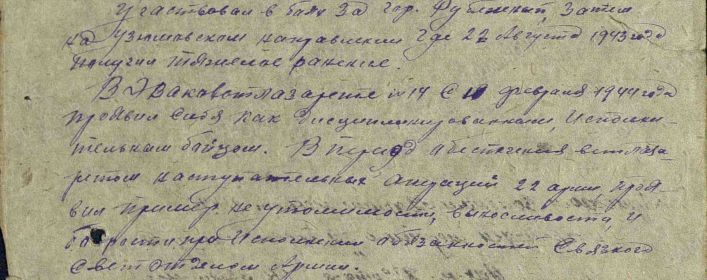 Участвовал в боях за гор. Рубежный, затем
на Изюмовском направлении где 22 Августа 1943 года
получил тяжелое ранение.
В Эваковетлазарете №14 с 10 февраля 1944 года
проявил себя как дисциплинированным, исполни-
тельным бойцом. В период обеспечения ветлаза-
ретом наступательных операций 22 армии проя-
вил пример неутомимости, выносливости, и
бодрости при исполнении обязанностей Связного
с Ветотделом Армии.